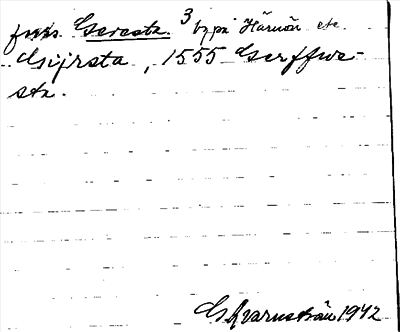 fvrs. Gersta. ³ by på Härnön etc.
Gijrsta, 1555 Gerffwe-
sta.
G Kvarnström 1942